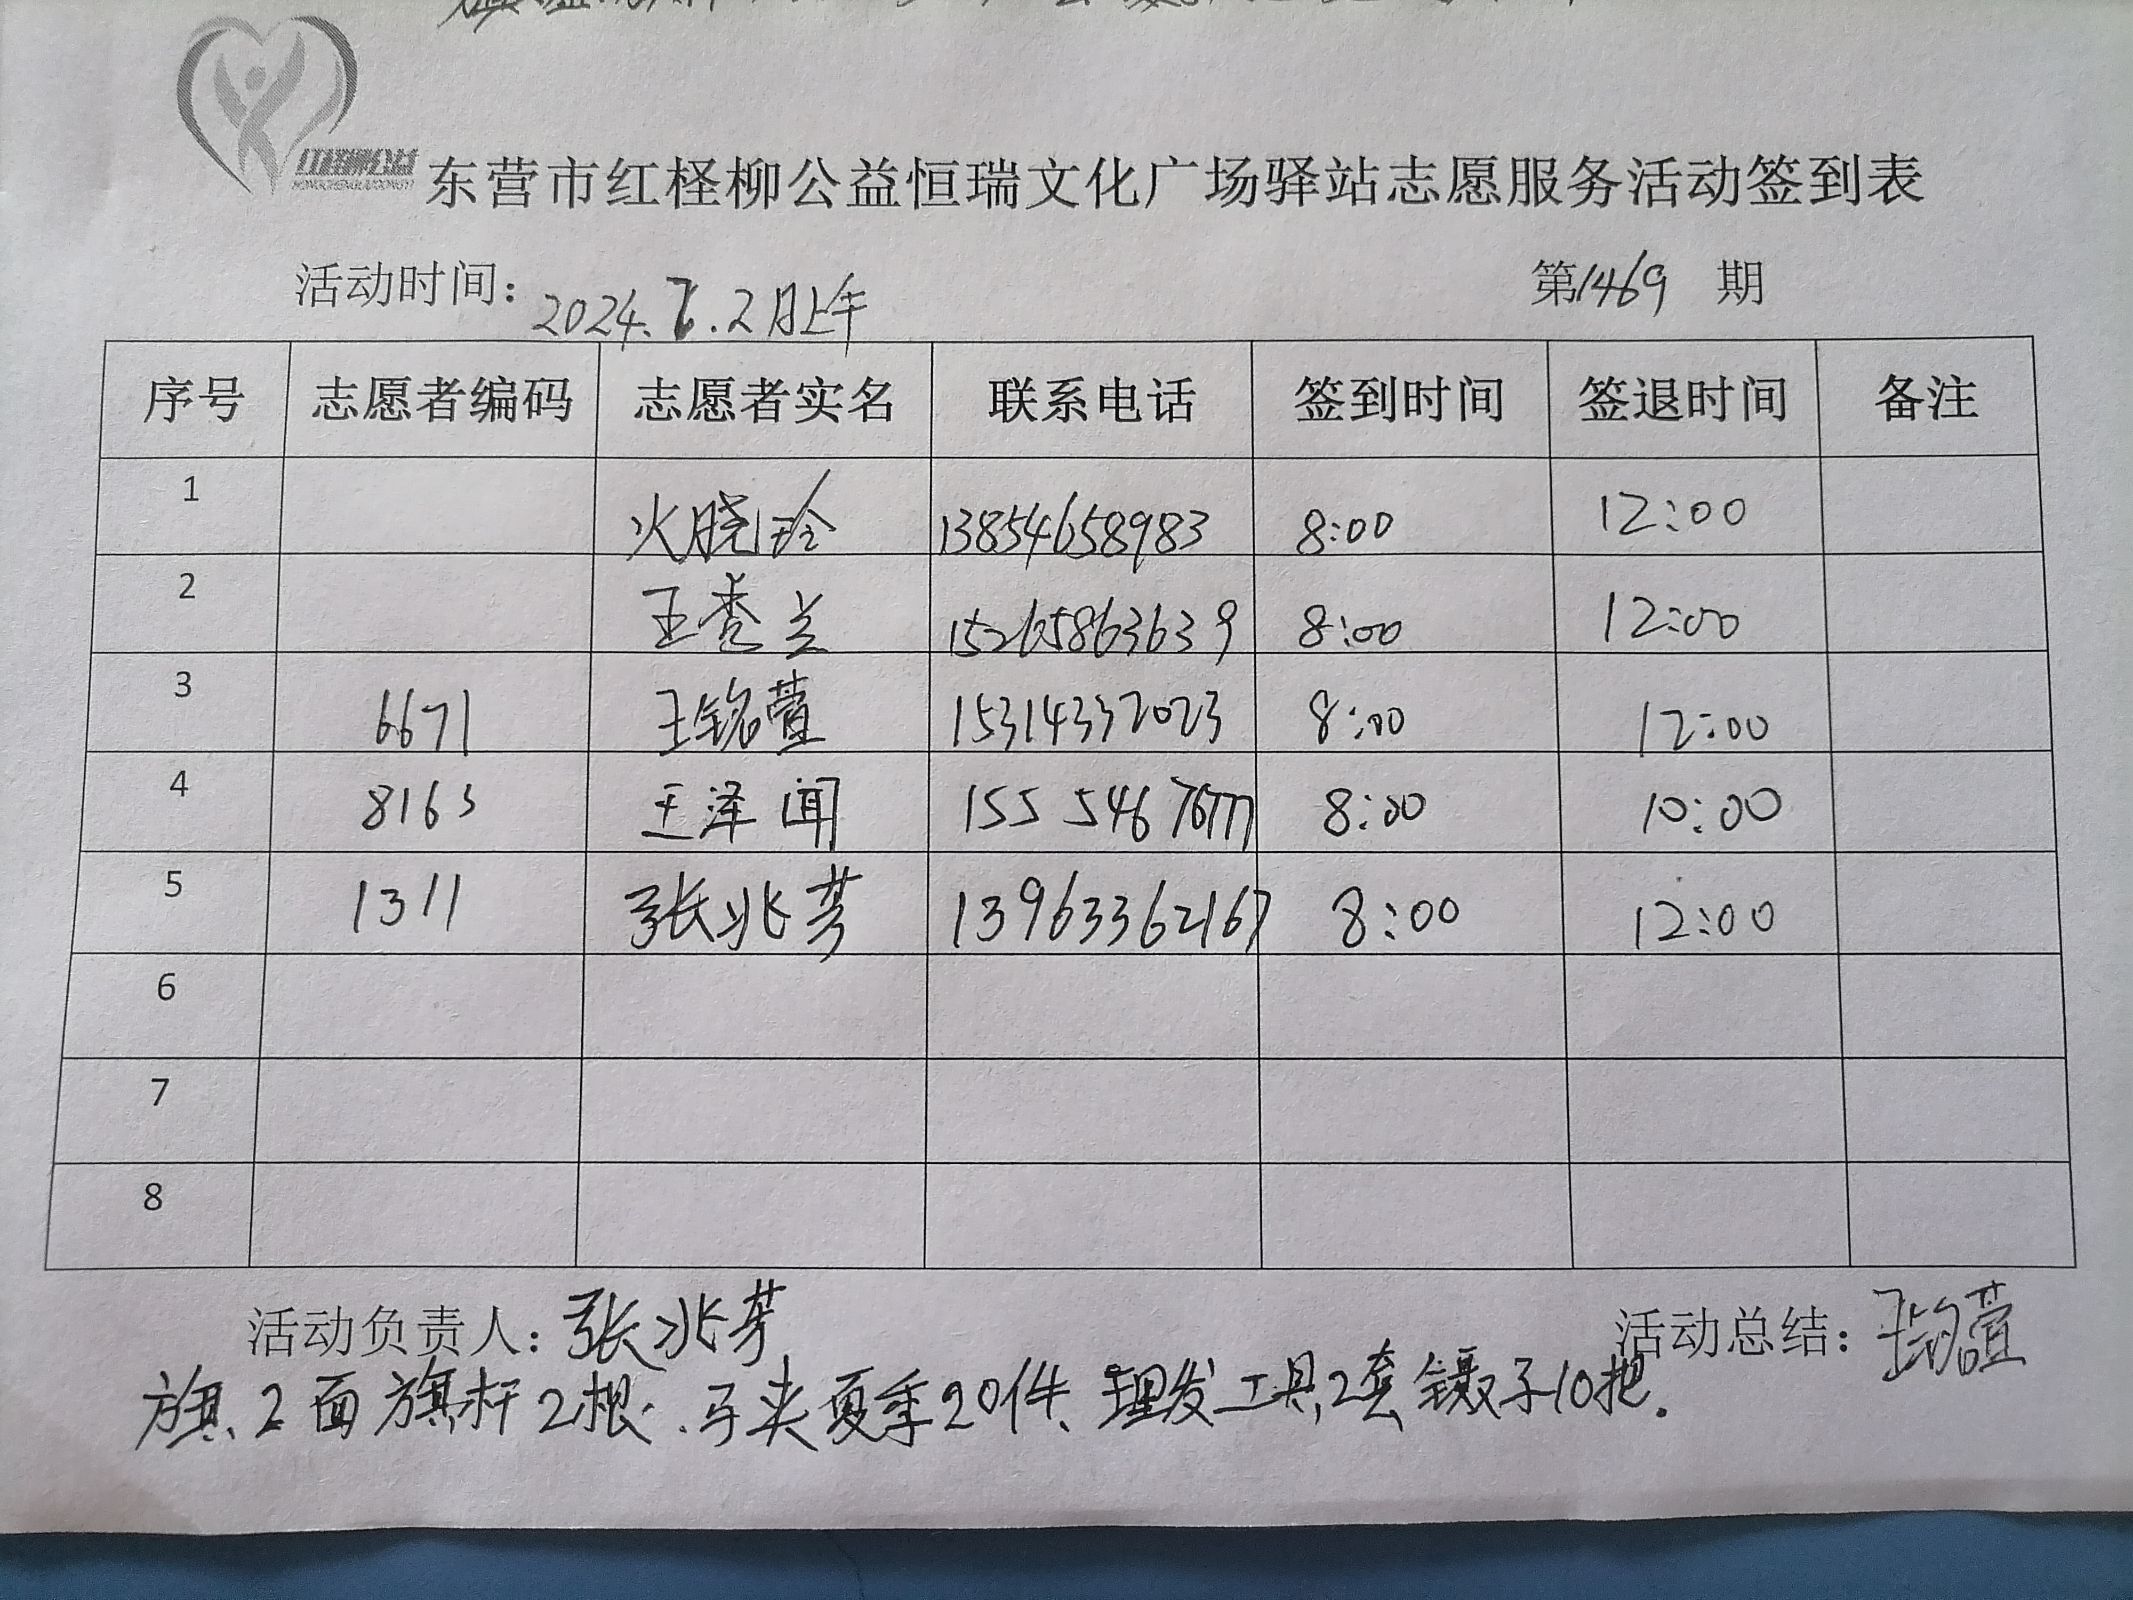 红柽柳公益
东营市红柽柳公益恒瑞文化广场驿站志愿服务活动签到表
活动时间: 2024. .2日上午 第1469期
序号 志愿者编码 志愿者实名 联系电话 签到时间 签退时间 备注
1 火晓玲 13854658983 8:00 12:00
2 王秀兰 15265863639 8:00 12:00
3 6671 王铭萱 15314332023 8:00 12:00
4 8163 王泽闻 8:00 10:00
5 1311 张兆芳 13963362167 8:00 12:00
6
7
8
活动负责人: 张兆芳 活动总结: 王铭萱
旗、2面旗杆2根、马夹夏季20件、理发工具2套镊子10把.